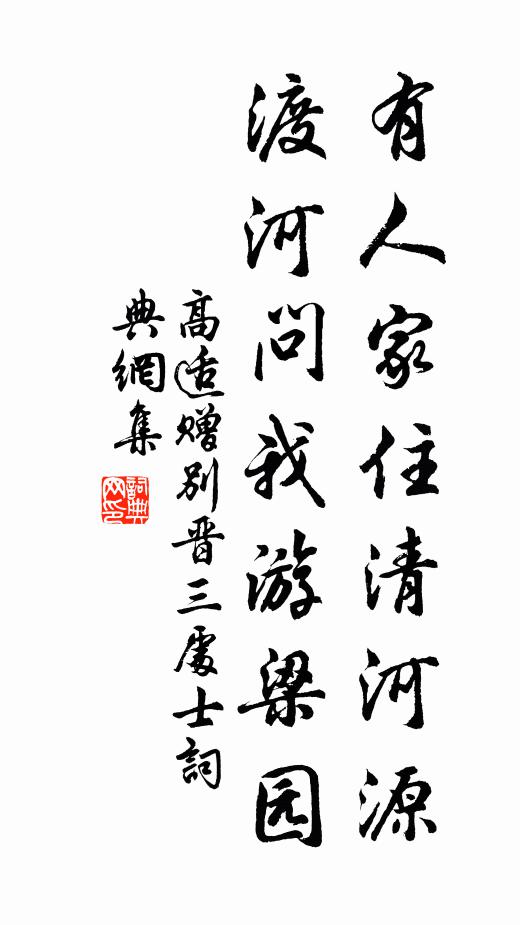 有人家住清河源
渡河问我游梁园
高适赠别晋三處士詞
典網集
詞典
网印